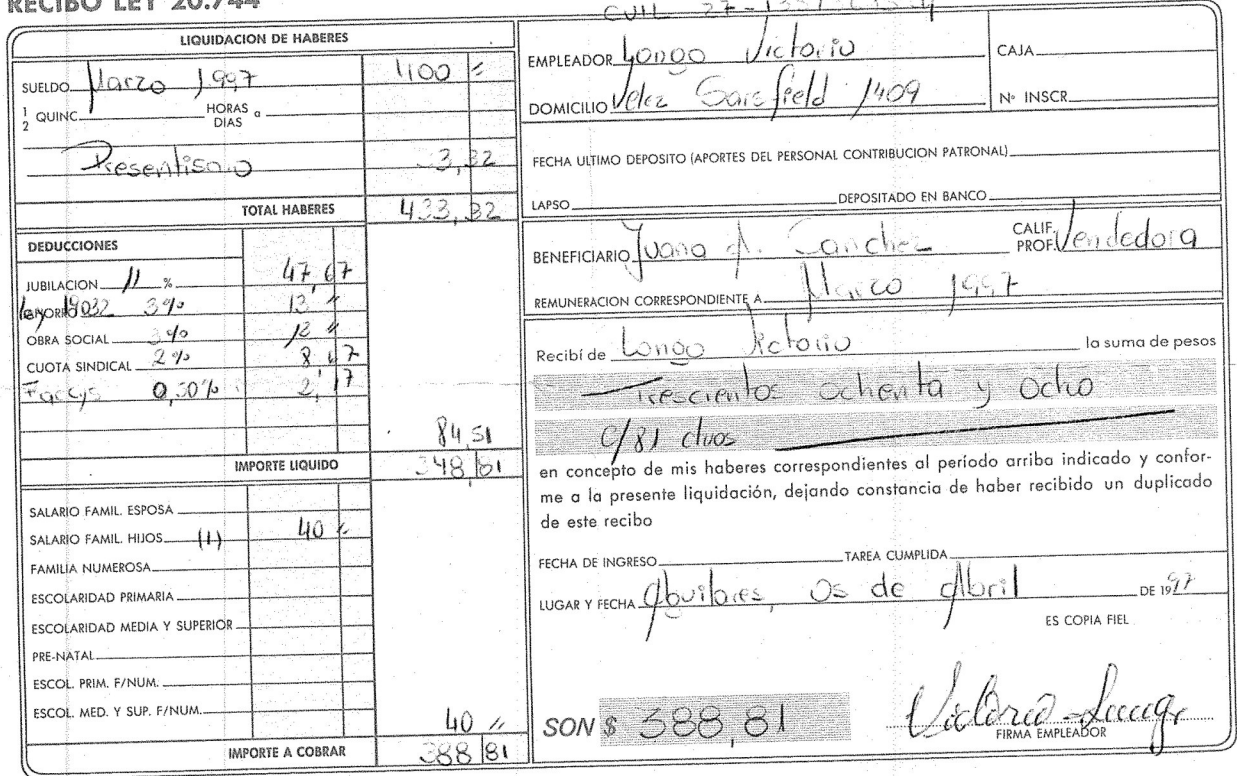 RECIBO LEY 20.744
CUIL 27-
LIQUIDACION DE HABERES
SUELDO Marzo 1997 400 =
1/2 QUINC HORAS DIAS a
Presentismo 3,32
TOTAL HABERES 433,32
DEDUCCIONES
JUBILACION 11 % 47,67
Ley 19032 3% 13 "
OBRA SOCIAL 3% 13 "
CUOTA SINDICAL 2% 8,67
Faecys 0,50% 2,17
84,51
IMPORTE LIQUIDO 348,81
SALARIO FAMIL. ESPOSA
SALARIO FAMIL. HIJOS (1) 40 "
FAMILIA NUMEROSA
ESCOLARIDAD PRIMARIA
ESCOLARIDAD MEDIA Y SUPERIOR
PRE-NATAL
ESCOL. PRIM. F/NUM.
ESCOL. MED. Y SUP. F/NUM.
40 "
IMPORTE A COBRAR 388,81
EMPLEADOR Longo Victorio
CAJA
DOMICILIO Velez Sarsfield 1409
Nº INSCR.
FECHA ULTIMO DEPOSITO (APORTES DEL PERSONAL CONTRIBUCION PATRONAL)
LAPSO DEPOSITADO EN BANCO
BENEFICIARIO Juana A. Sanchez
CALIF. PROF. Vendedora
REMUNERACION CORRESPONDIENTE A Marzo 1997
Recibí de Longo Victorio la suma de pesos
Trescientos ochenta y ocho
c/81 ctvos
en concepto de mis haberes correspondientes al período arriba indicado y confor-
me a la presente liquidación, dejando constancia de haber recibido un duplicado
de este recibo
FECHA DE INGRESO TAREA CUMPLIDA
LUGAR Y FECHA Aguilares, 05 de Abril DE 1997
ES COPIA FIEL
SON $ 388,81
FIRMA EMPLEADOR